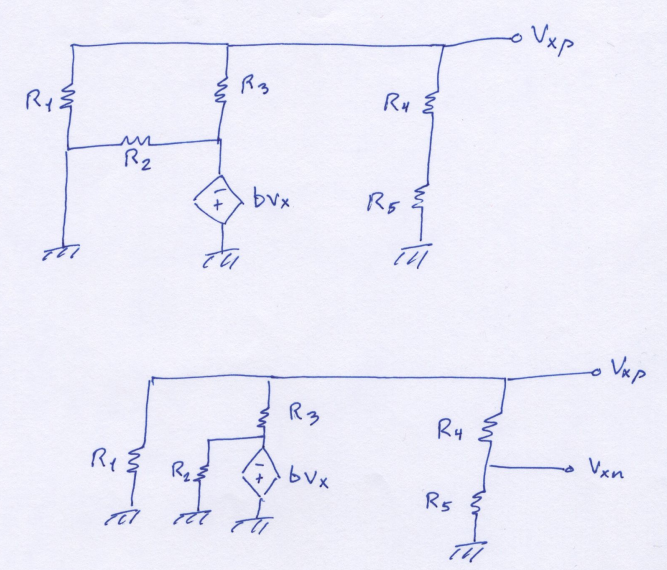 Vxp
R1
R3
R4
R2
- + bvx
R5
Vxp
R3
R4
R1
R2
- + bvx
Vxn
R5